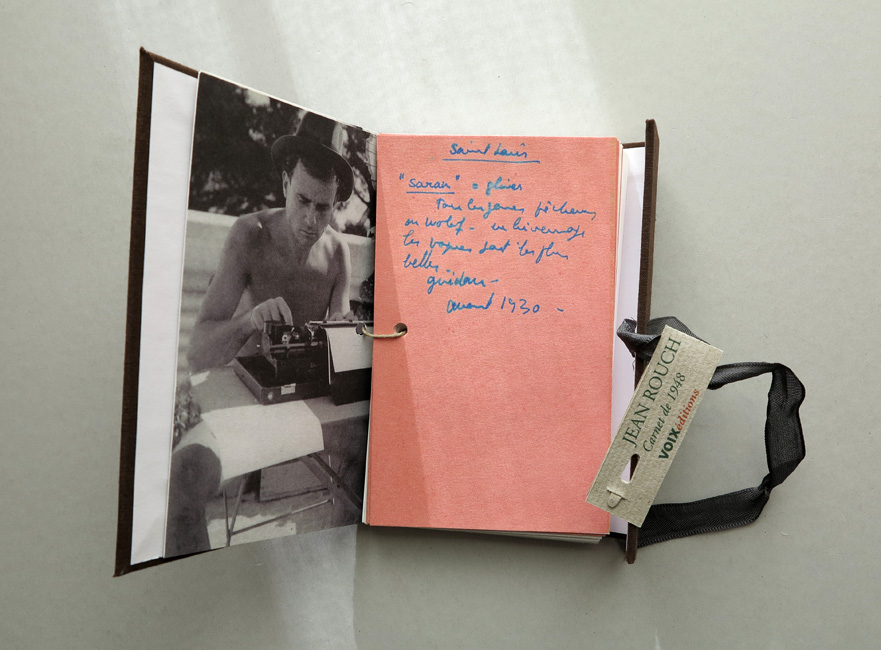 Saint Louis
"saran" = glisser
Tous les jeunes pêcheurs
en wolof - en hivernage
les vagues sont les plus
belles
avant 1930 -
JEAN ROUCH
Carnet de 1948
VOIXéditions